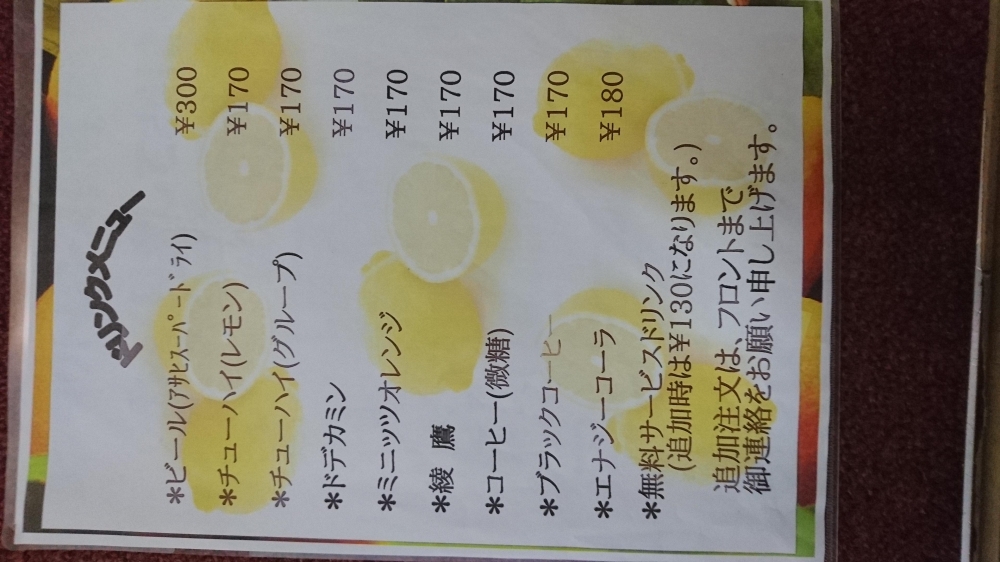 ドリンクメニュー
*ビール(ｱｻﾋｽｰﾊﾟｰﾄﾞﾗｲ) ¥300
*チューハイ(レモン) ¥170
*チューハイ(グループ) ¥170
*ドデカミン ¥170
*ミニッツオレンジ ¥170
*綾 鷹 ¥170
*コーヒー(微糖) ¥170
*ブラックコーヒー ¥170
*エナジーコーラ ¥180
*無料サービスドリンク
(追加時は¥130になります。)
追加注文は、フロントまで
御連絡をお願い申し上げます。